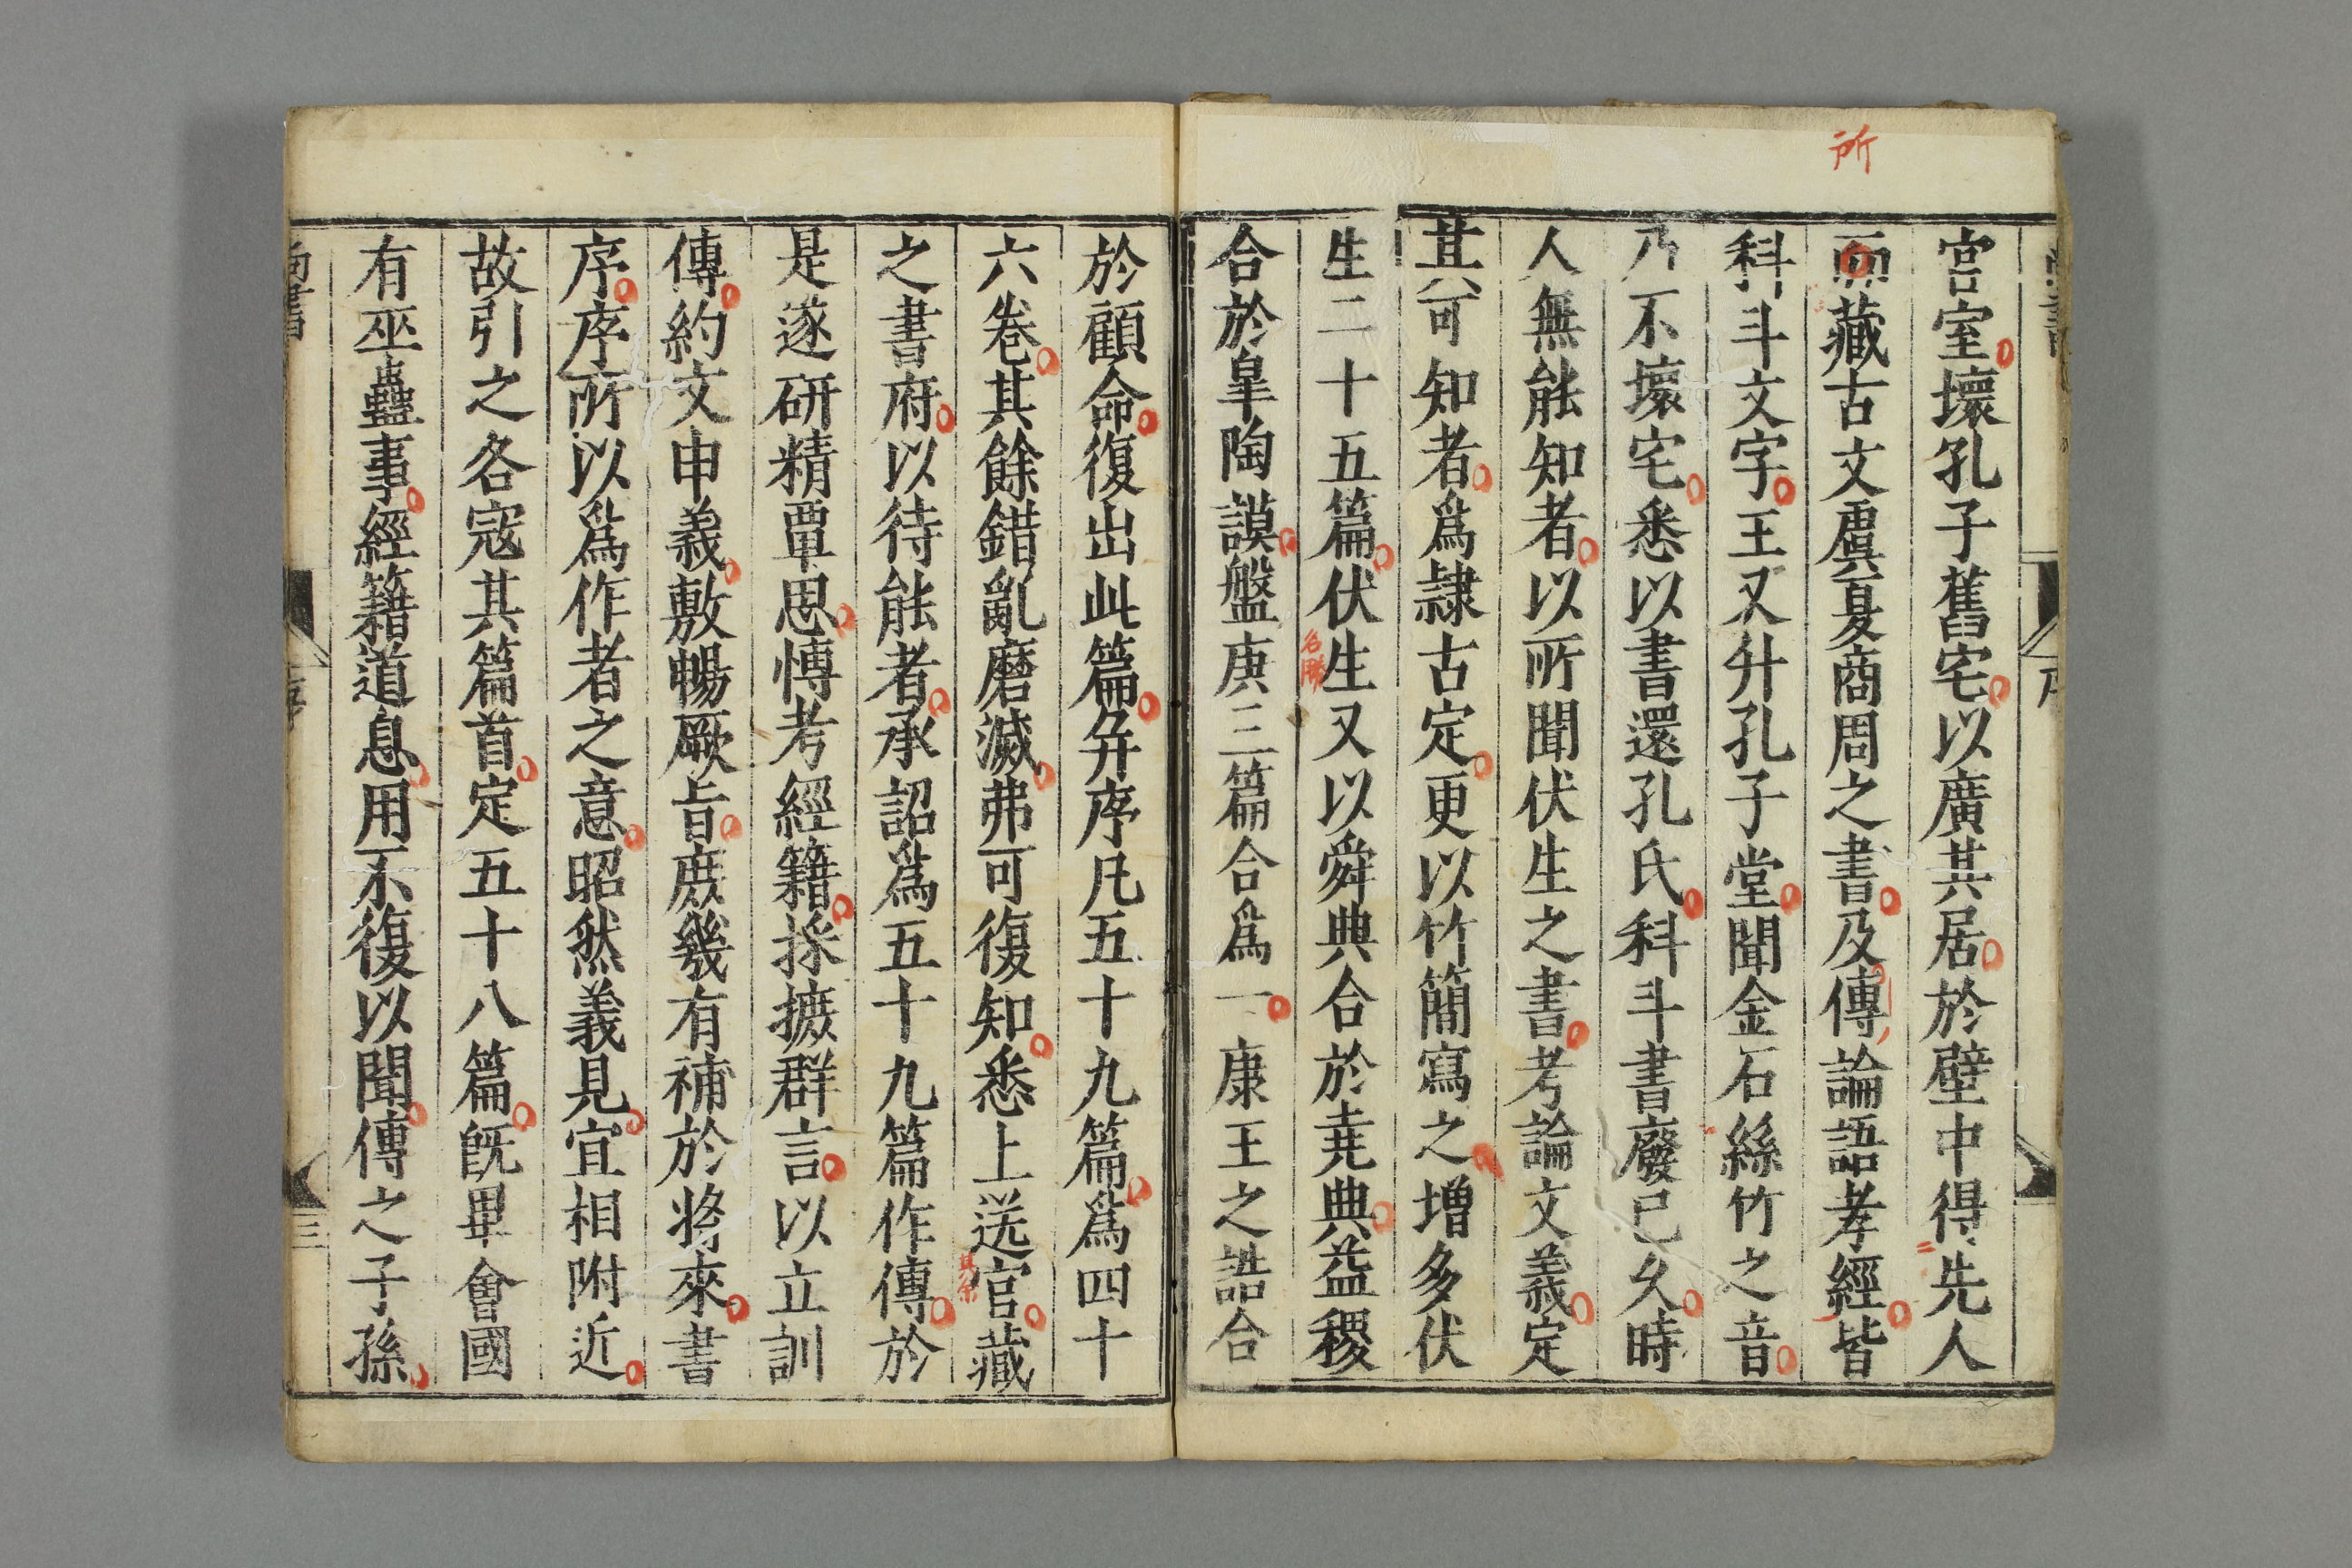 所
宮室壞孔子舊宅以廣其居於壁中得先人
而藏古文虞夏商周之書及傳論語孝經皆
科斗文字王又升孔子堂聞金石絲竹之音
乃不壞宅悉以書還孔氏科斗書廢已久時
人無能知者以所聞伏生之書考論文義定
其可知者爲隷古定更以竹簡寫之增多伏
生二十五篇伏生又以舜典合於堯典益稷
名勝
合於皐陶謨盤庚三篇合爲一康王之誥合
於顧命復出此篇并序凡五十九篇爲四十
六卷其餘錯亂磨滅弗可復知悉上送官藏
其余
之書府以待能者承詔爲五十九篇作傳於
是遂研精覃思愽考經籍採摭群言以立訓
傳約文申義敷暢厥旨庶幾有補於將來書
序序所以爲作者之意昭然義見宜相附近
故引之各冠其篇首定五十八篇旣畢會國
有巫蠱事經籍道息用不復以聞傳之子孫
序
三